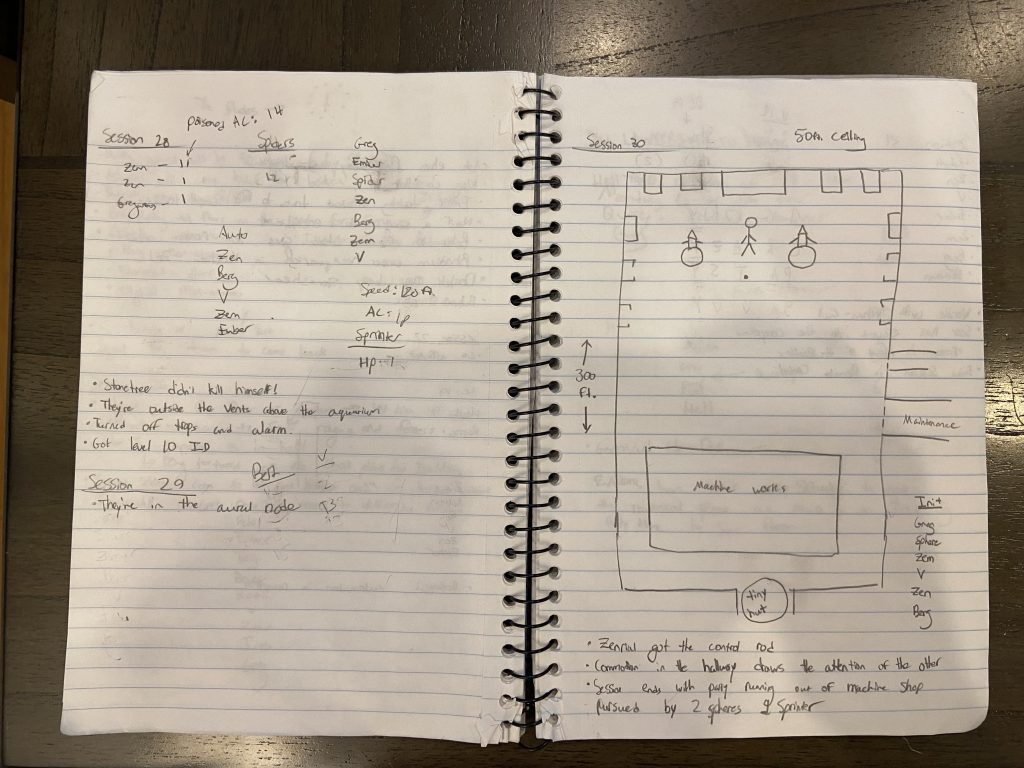 Poisoned AC: 14
Session 28
Zen - 11
Zen - 1
Gregarious - 1
Spiders
12
Greg
Ember
Spider
Zen
Berg
Zem
V
Auto
Zen
Berg
V
Zem
Ember
Speed: 120 ft.
AC: 19
Sprinter
Hp: 7
• Stonetree didn't kill himself!
• They're outside the vents above the aquarium
• Turned off traps and alarm.
• Got level 10 ID
Session 29
• They're in the aural node
Berg
V
Session 30
50ft. ceiling
↑
300
Ft.
↓
Maintenance
Machine works
tiny
hut
Init
Greg
Sphere
Zem
V
Zen
Berg
• Zenrial got the control rod
• Commotion in the hallway draws the attention of the other
• Session ends with party running out of machine shop
pursued by 2 spheres & Sprinter